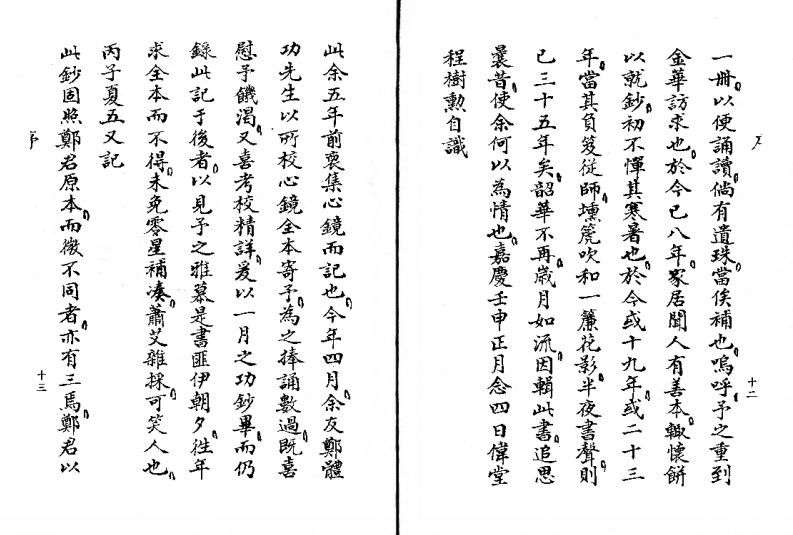 序
一冊。以便誦讀。倘有遺珠。當俟補也。嗚呼。予之重到
金華訪求也。於今已八年。家居聞人有善本。輙懷餅
以就鈔。初不憚其寒暑也。於今或十九年。或二十三
年。當其負笈從師。壎箎吹和。一簾花影。半夜書聲。則
已三十五年矣。韶華不再。歲月如流。因輯此書。追思
曩昔。使余何以為情也。嘉慶壬申正月念四日偉堂
程樹勲自識
十二
此余五年前裒集心鏡而記也。今年四月。余友鄭體
功先生以所校心鏡全本寄予。為之捧誦數過。既喜
慰予饑渴。又喜考校精詳。爰以一月之功鈔畢。而仍
録此記于後者。以見予之雅慕是書。匪伊朝夕。徃年
求全本而不得。未免零星補凑。蕭艾雜採。可笑人也。
丙子夏五又記
此鈔固照鄭君原本。而微不同者。亦有三焉。鄭君以
序
十三